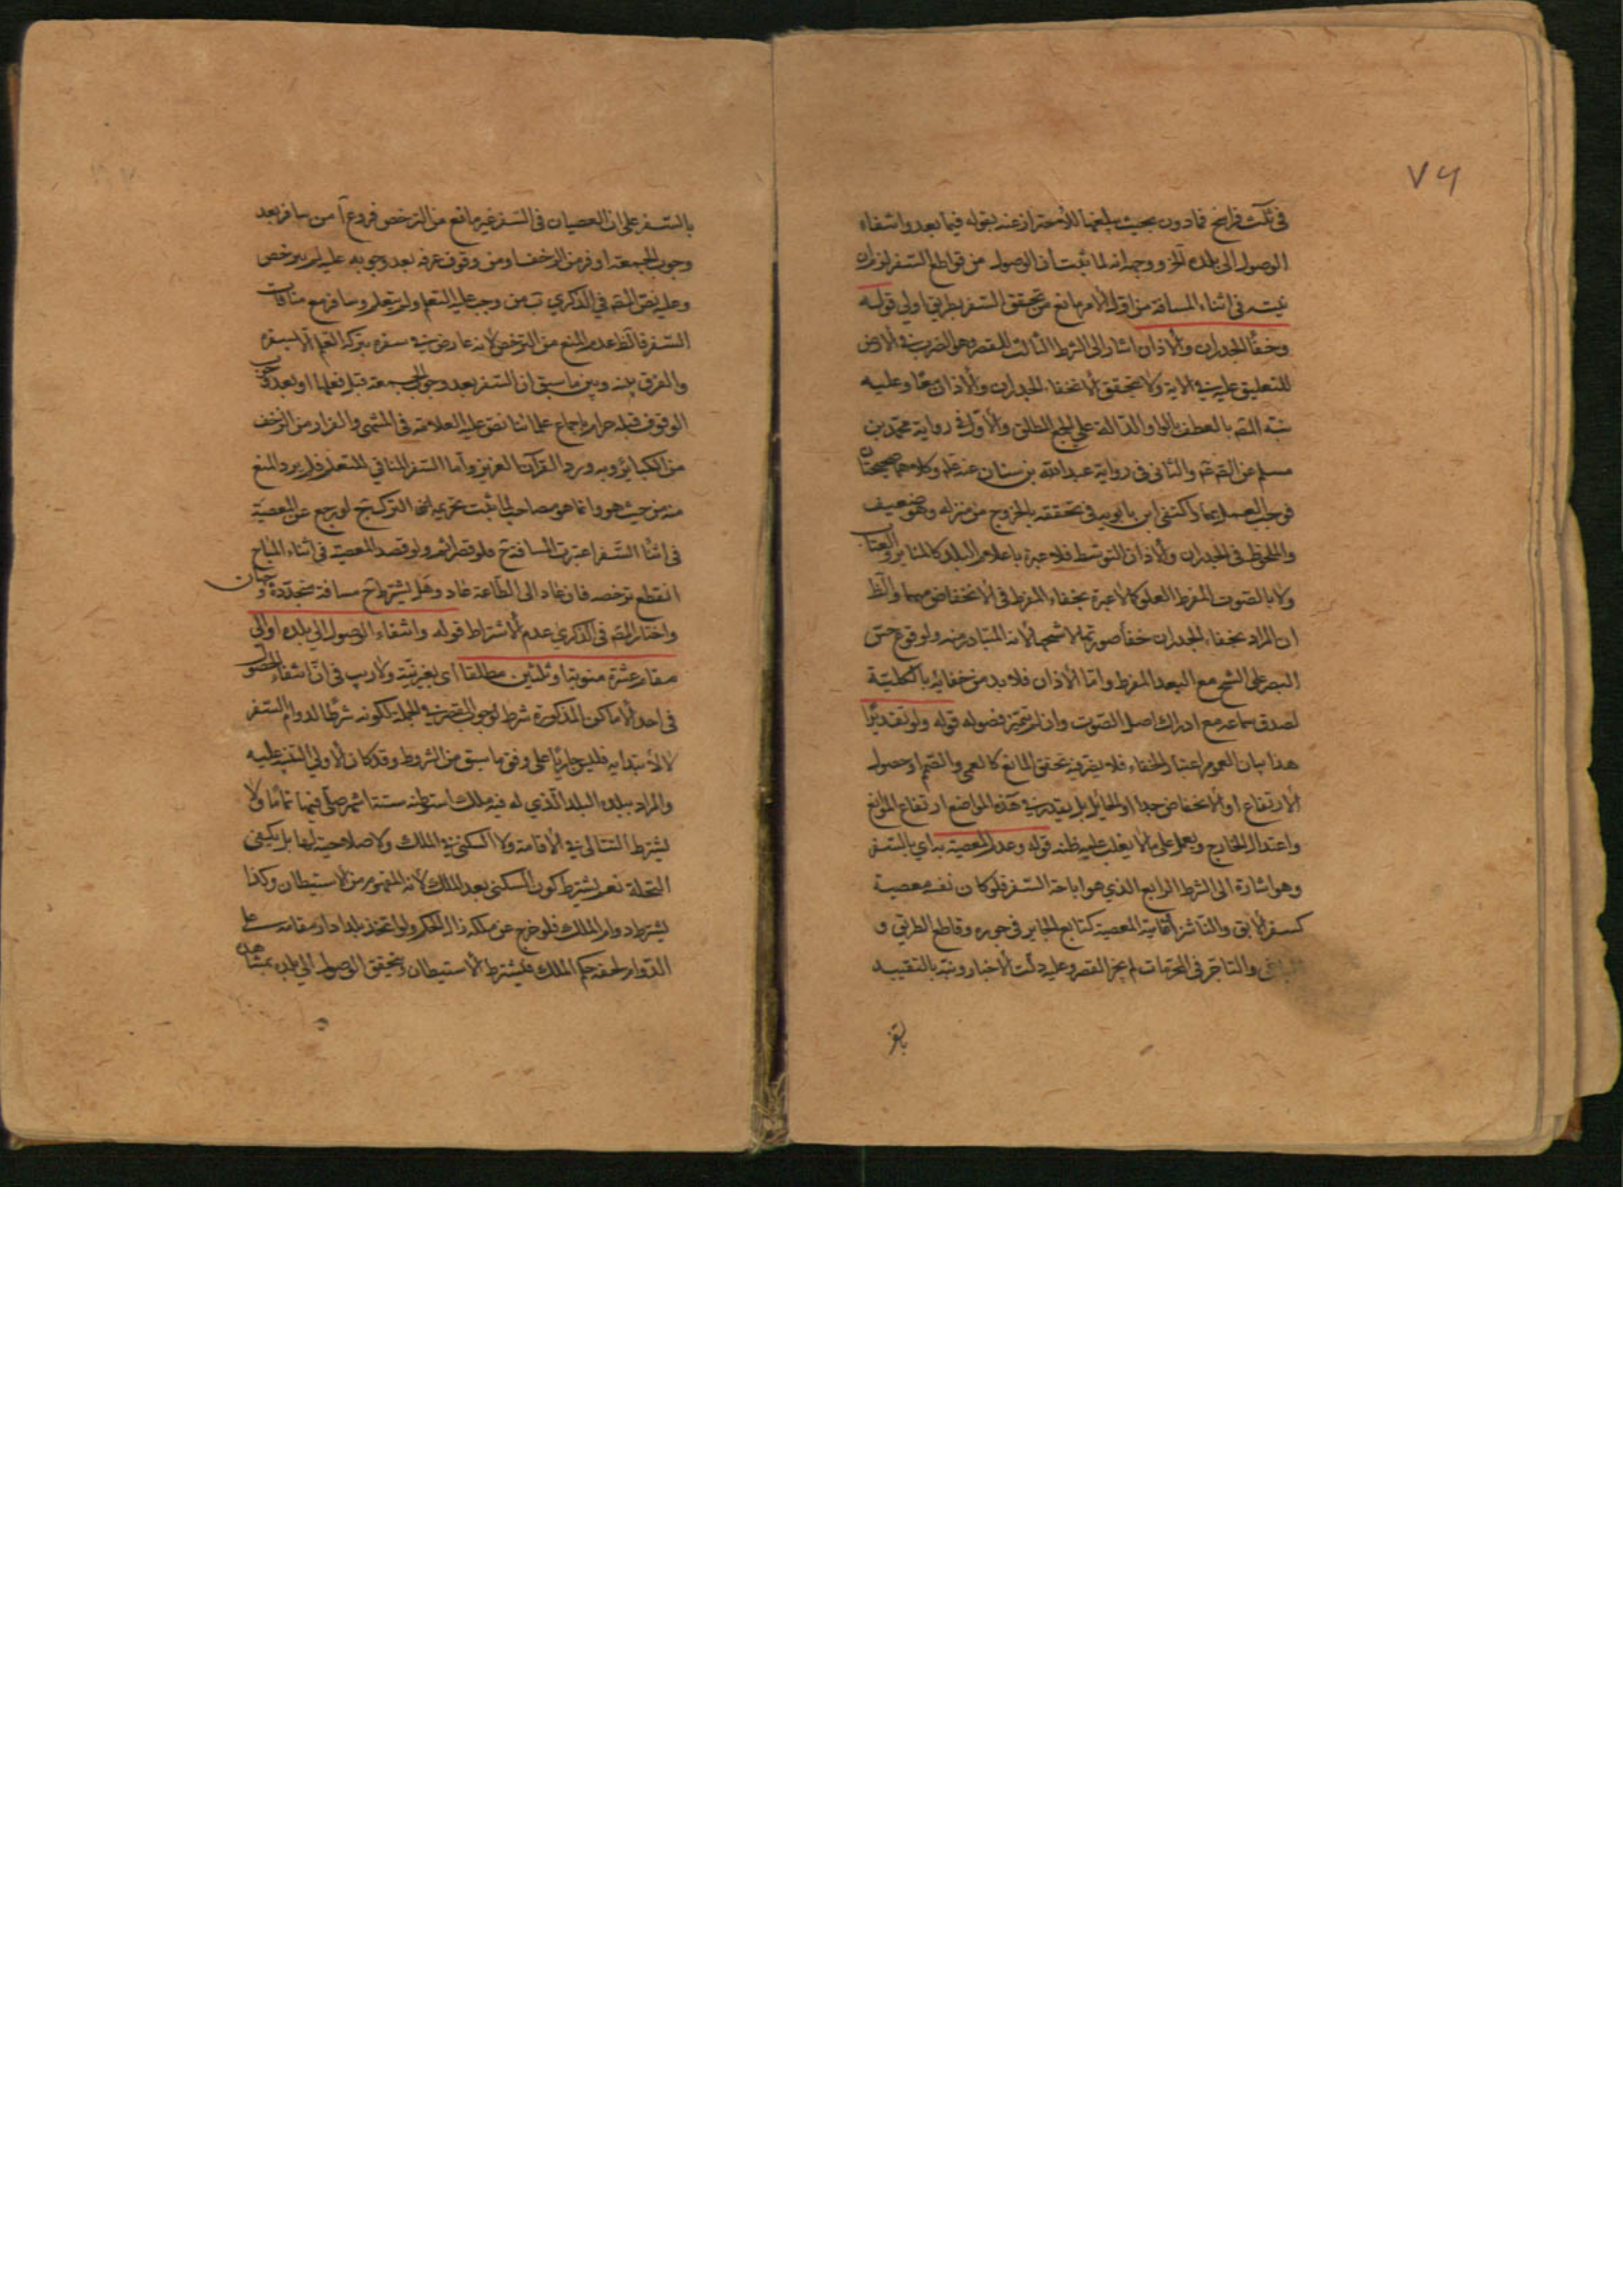 ٧٦
في ثلث فراسخ فما دون بحيث يبلغها للاحتراز عنه بقوله فيما بعد وانتفاء
الوصول الى بلده آخر ووجهه انه لما ثبت ان الوصول من قواطع السفر لزم ان
نيته في اثناء المسافة من اول الامر مانع من تحقق السفر بطريق اولى قوله
وخفاء الجدران والاذان اشار الى الشرط الثالث للقصر وهو الضرب في الارض
للتعليق عليه في الاية ولا يتحقق الا بخفاء الجدران والاذان معًا وعليه
نبّه المصـ بالعطف بالواو الدّالة على الجمع المطلق والاول في رواية محمّد بن
مسلم عن الصّـ عم والثاني في رواية عبد الله بن سنان عنه علم وكلاهما صحيحتان
فوجب العمل بهما واكتفى ابن بابويه في تحققه بالخروج من منزله وهو ضعيف
والملحوظ في الجدران والاذان التوسّط فلا عبرة باعلام البلد كالمنابر والعتاب
ولا بالصّوت المفرط العلو كما لا عبرة بخفاء المفرط في الانخفاض منهما والظ
ان المراد بخفاء الجدران خفاء صورتها لا شبحها لانه المتبادر منه ولوقوع حسّ
البصر على الشبح مع البعد المفرط وامّا الاذان فلا بد من خفائه بالكليّة
لصدق سماعه مع ادراك اصل الصّوت وان لم تتميّز فصوله قوله ولو تقديرًا
هذا بيان لعموم اعتبار الخفاء فلا يضر فيه تحقق المانع كالعمى والصّمم او حصول
الارتفاع او الانخفاض جدا او الحائل بل يقدر في هذه المواضع ارتفاع الموانع
واعتدال المخارج ويعمل على ما لا يغلب عليه ظنه قوله وعدم المعصية به اي بالسّفر
وهو اشارة الى الشرط الرابع الذي هو اباحة السّفر فلو كان نفسه معصية
كسفر الابق والنّاشز او غايته المعصية كتابع الجاير في جوره وقاطع الطريق و
الباغي والتاجر في المحرّمات لم يجز القصر وعليه دلّت الاخبار ونبّه بالتقييد
بالسّفر
بالسّـفر على ان العصيان في السّفر غير مانع من الترخص فروع آ من سافر بعد
وجوب الجمعة او فر من الزحف او من وقوف عرفة بعد وجوبه عليه لم يترخص
وعليه نصّ المصـ في الذكرى ب من وجب عليه التعلم ولم يتعلم وسافر مع منافات
السّفر فالظ عدم المنع من الترخص لانه عارض في سفره بتركه التعلم الا لسفره
والفرق بينه وبين ما سبق ان السّفر بعد وجوب الجمعة قبل فعلها او بعد وجوب
الوقوف قبله حرام باجماع علمائنا نصّ عليه العلامة في المنتهى والفرار من الزحف
من الكبائر وبه ورد القرآن العزيز وامّا السّفر المنافي للتعلم فلم يرد المنع
منه من حيث هو وانما هو مصاحب لما ثبت تحريمه اعني الترك ج لو رجع عن المعصية
في اثناء السّفر اعتبرت المسافة ح فلو قصر اثم ولو قصد المعصية في اثناء المباح
انقطع ترخصه فان عاد الى الطّاعة عاد وهل يشترط ح مسافة متجدّدة وجهان
واختار المصـ في الذكرى عدم الاشتراط قوله وانتفاء الوصول الى بلده او الى
مقام عشرة منوية او ثلثين مطلقا اى بغير نيّة ولا ريب في انّ انتفاء الوصول
في احد الاماكن المذكورة شرط لوجوب التقصير في الجملة لكونه شرطًا لدوام السّفر
لا لابتدائه فليس جاريًا على وفق ما سبق من الشروط وقد كان الاولى التنبيه عليه
والمراد ببلده البلد الّذي له فيه ملك استوطنه ستّة اشهر صلّى فيها تمامًا ولا
يشترط التّتالي في الاقامة ولا السكنى في الملك ولا صلاحيته لها بل يكفى
النخلة نعم يشترط كون السكنى بعد الملك لانه المفهوم من الاستيطان وكذا
يشترط دوام الملك فلو خرج عن ملكه زال الحكم ولو اتخذ بلدا دار مقامه على
الدّوام لحقه حكم الملك فيشترط الاستيطان ويتحقق الوصول الى بلده بمشاهدة